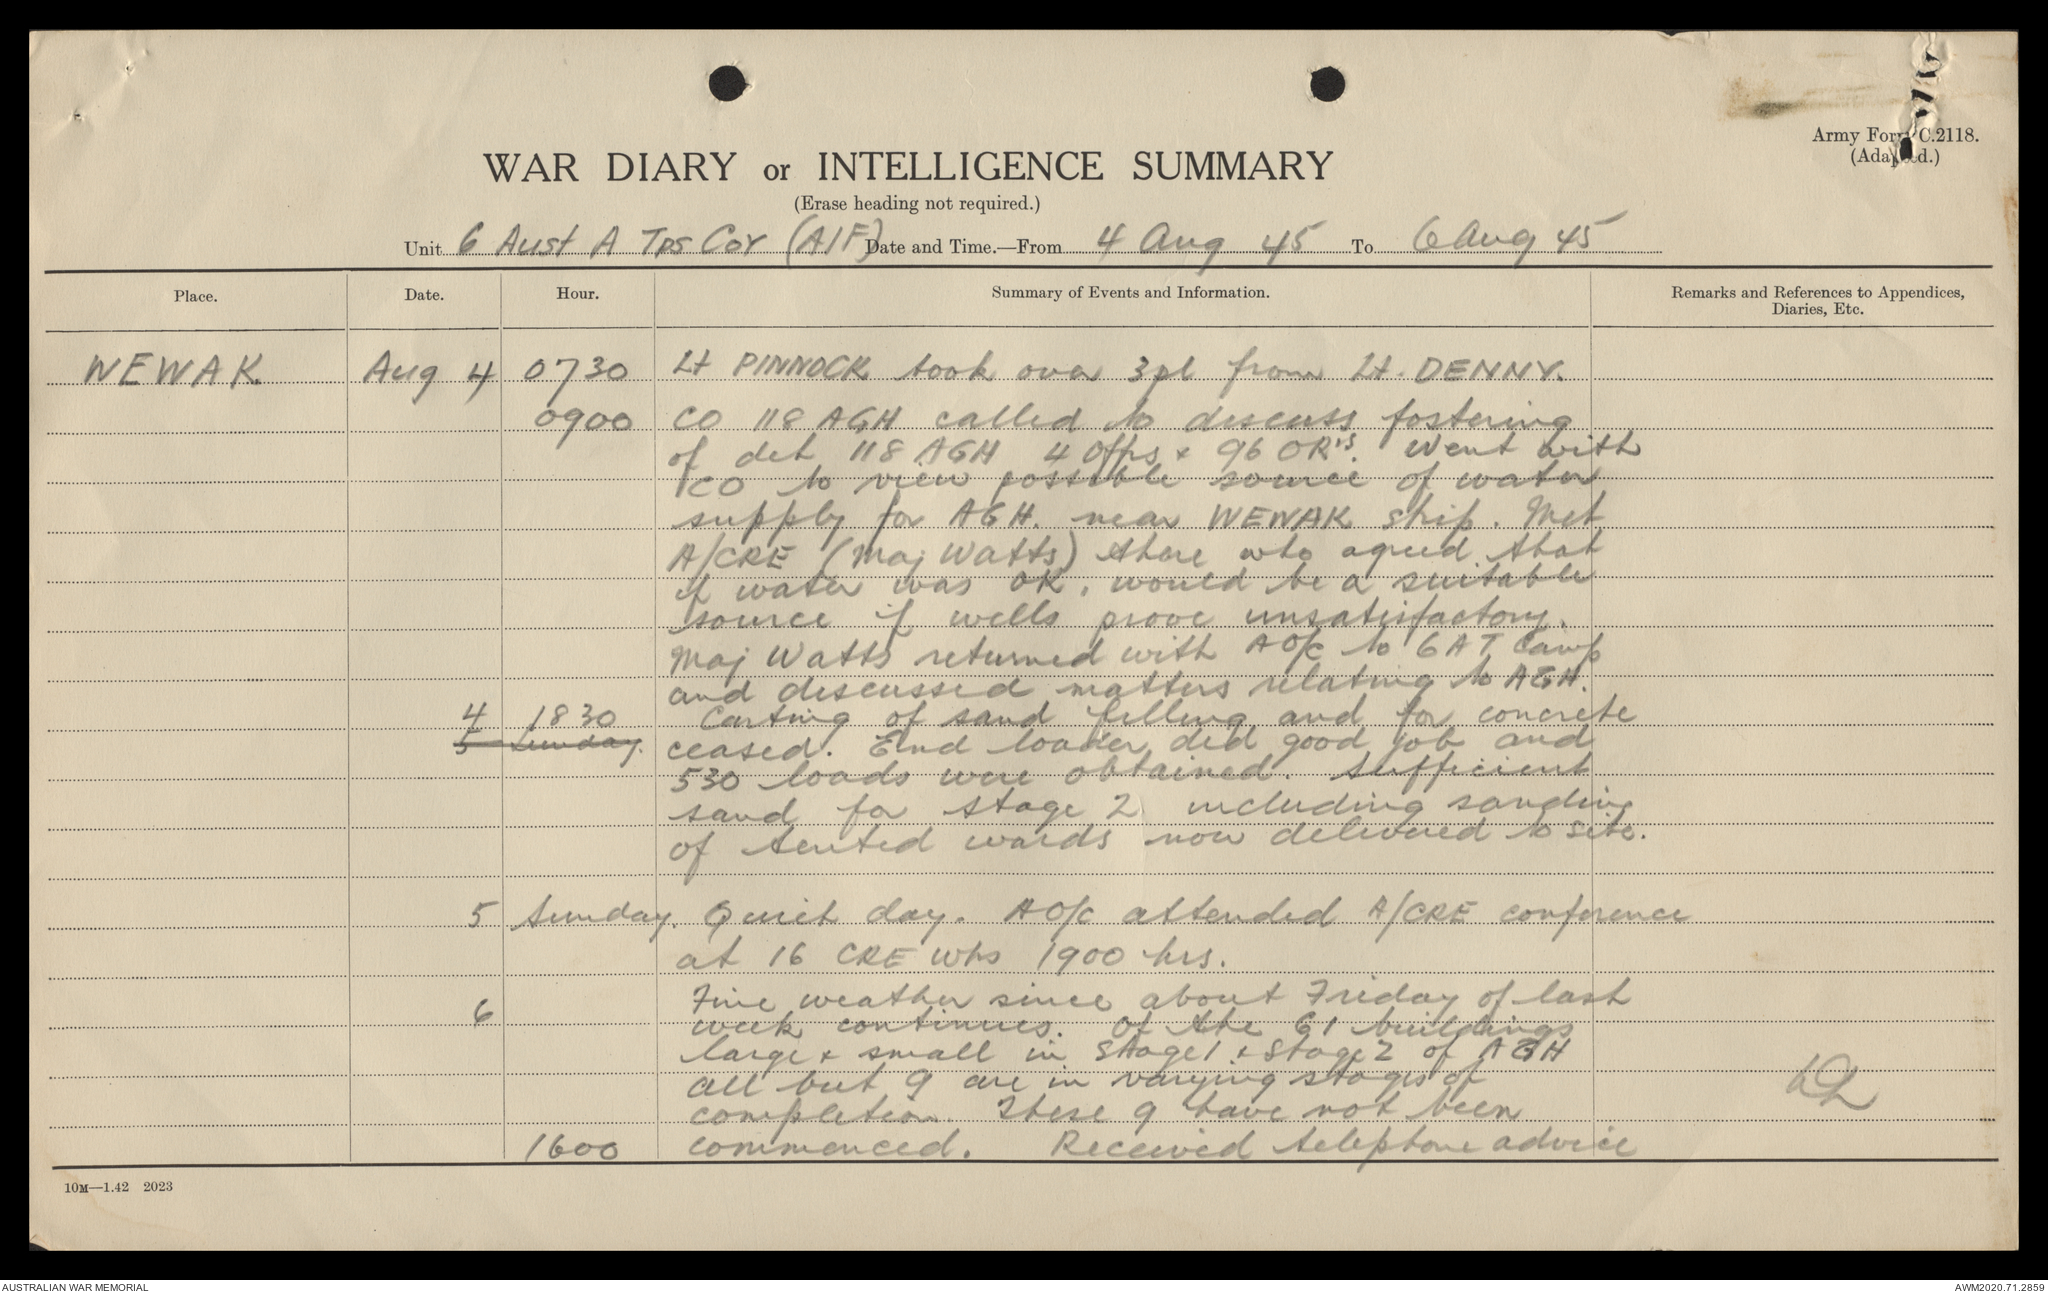 Army Form C.2118.
(Adapted.)
WAR DIARY or INTELLIGENCE SUMMARY
(Erase heading not required.)
Unit 6 Aust A Tps Coy (AIF) Date and Time.—From 4 Aug 45 To 6 Aug 45
Place. Date. Hour. Summary of Events and Information. Remarks and References to Appendices, Diaries, Etc.
WEWAK. Aug 4 0730 Lt PINNOCK took over 3pl from Lt. DENNY.
0900 CO 118 AGH called to discuss fostering
of det 118 AGH 4 Offrs & 96 OR's. Went with
CO to view possible source of water
supply for AGH. near WEWAK strip. Met
A/CRE (Maj Watts) there who agreed that
if water was OK, would be a suitable
source if wells prove unsatisfactory.
Maj Watts returned with AO/c to 6 A T Camp
and discussed matters relating to AGH.
4 1830 Carting of sand filling and for concrete
5 Sunday. ceased. End loader did good job and
530 loads were obtained. Sufficient
sand for stage 2 including sanding
of tented wards now delivered to site.
5 Sunday. Quiet day. AO/c attended A/CRE conference
at 16 CRE Wks 1900 hrs.
6 Fine weather since about Friday of last
week continues. Of the 61 buildings
large & small in Stage 1 & Stage 2 of AGH
all but 9 are in varying stages of
completion. These 9 have not been
1600 commenced. Received telephone advice
10M—1.42 2023
AUSTRALIAN WAR MEMORIAL AWM2020.71.2859